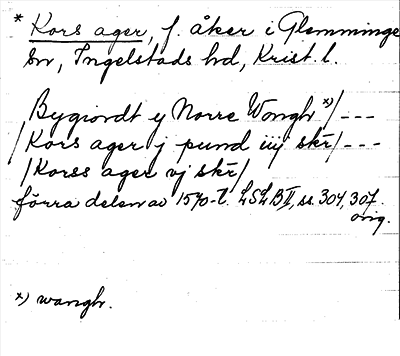 * Kors ager, f. åker i Glemminge
sn, Ingelstads hd, Krist. l.
Bygiordt y Norre Wongh x)/---
/Kors ager j pund iiij skr/---
/Korss ager vj skr/
förra delen av 1570-t. LSLB II, ss. 304, 307.
orig.
x) wangh.